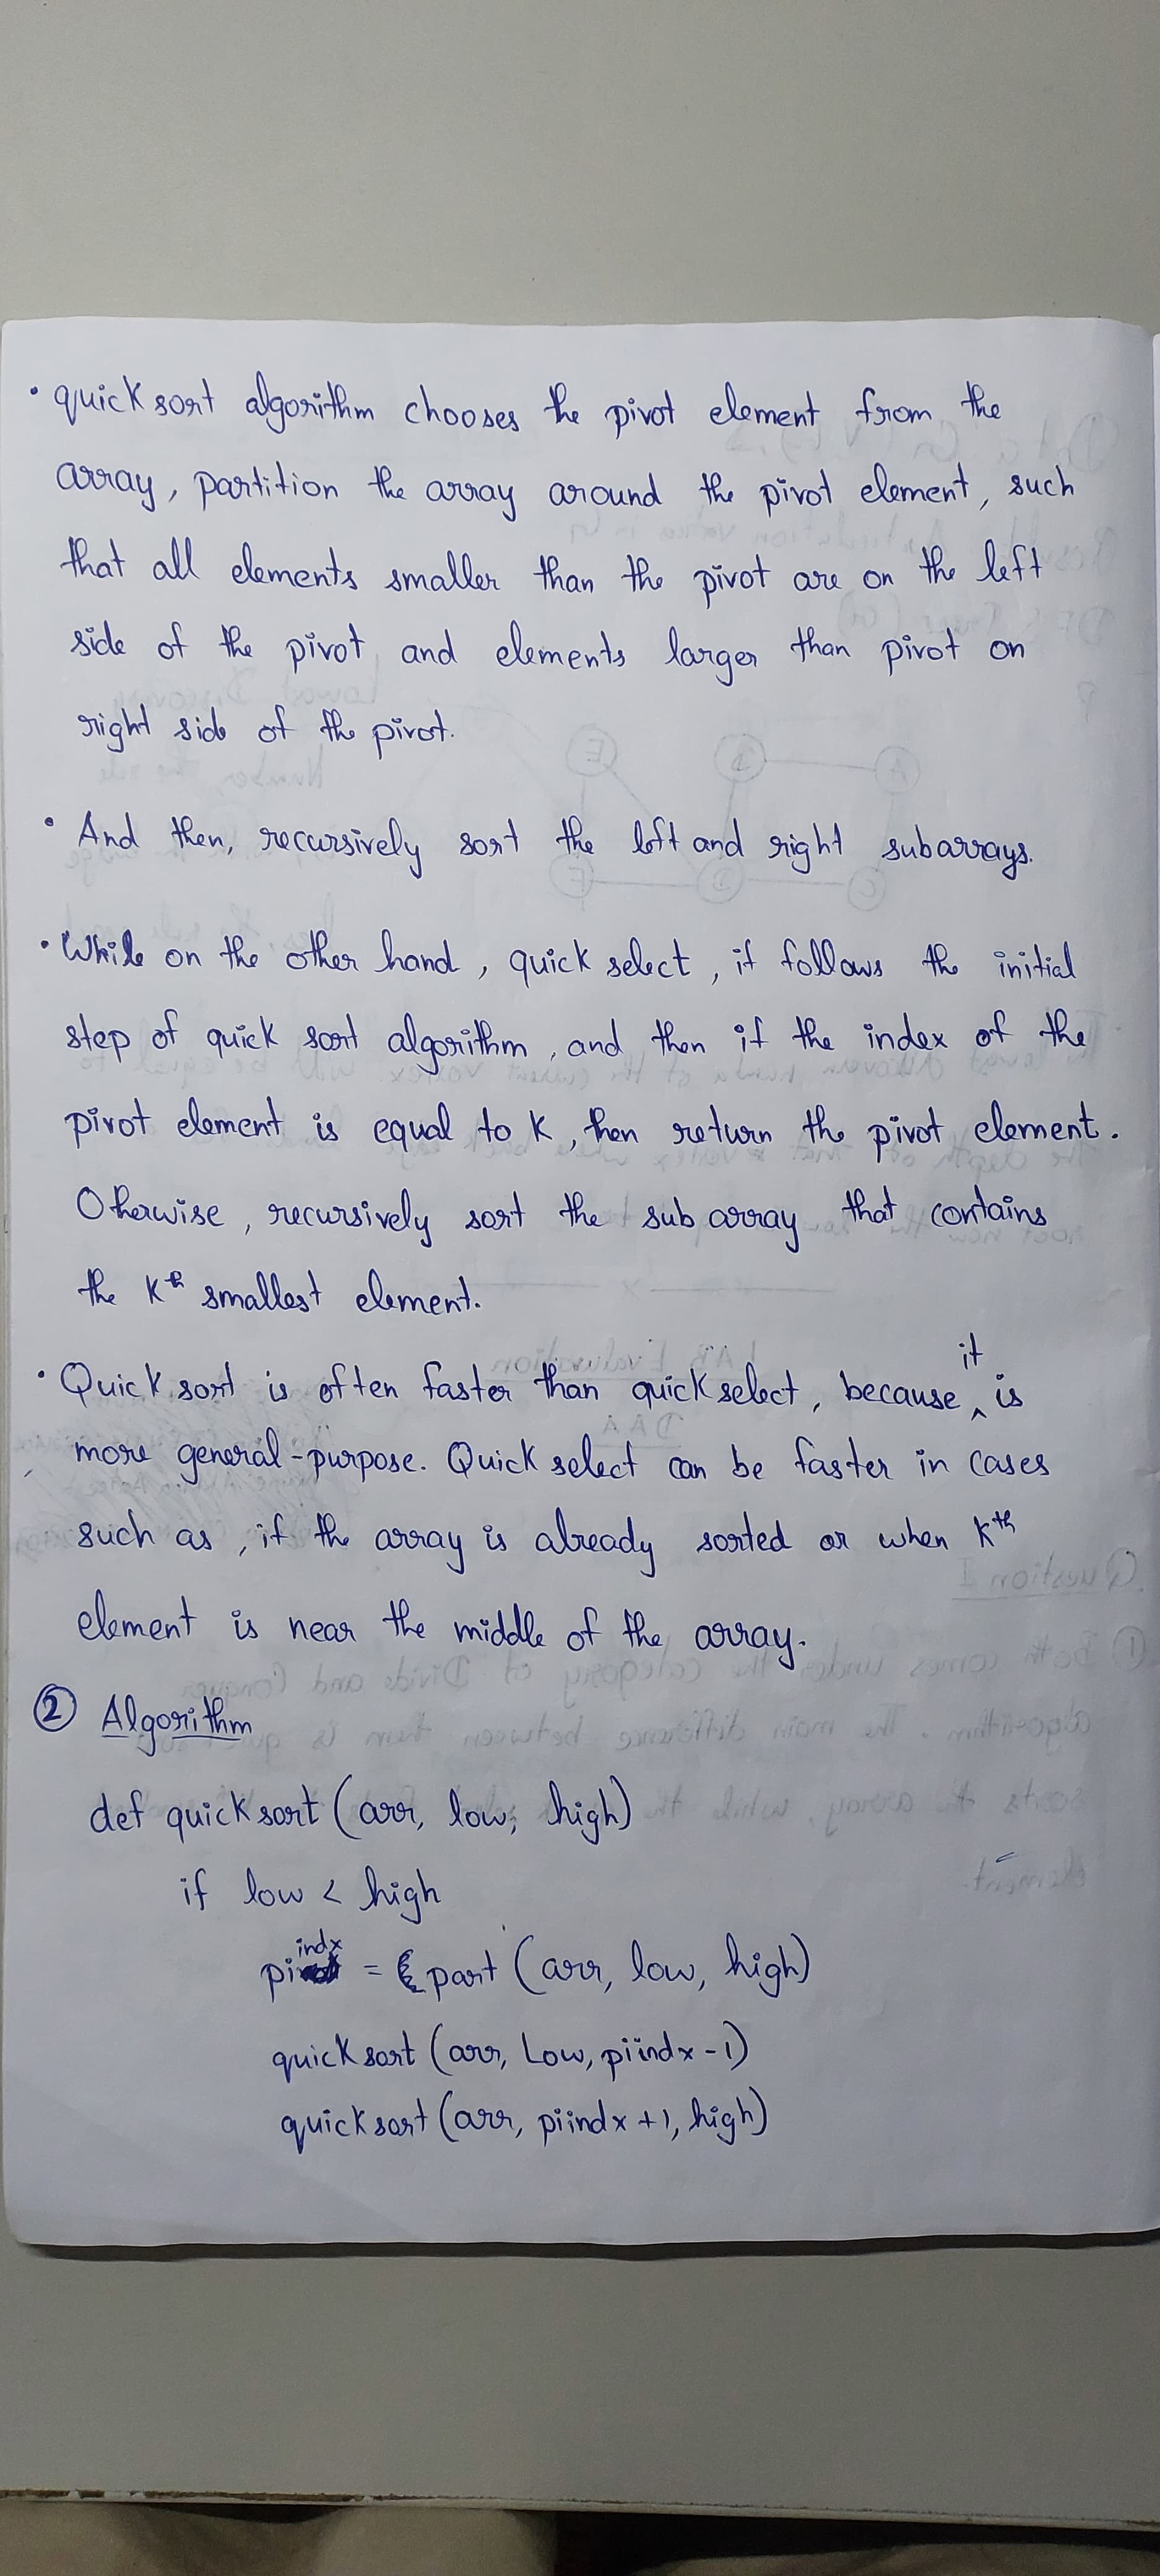 • quick sort algorithm chooses the pivot element from the
array, partition the array around the pivot element, such
that all elements smaller than the pivot are on the left
side of the pivot and elements larger than pivot on
right side of the pivot.
• And then, recursively sort the left and right subarrays.
• While on the other hand, quick select, it follows the initial
step of quick sort algorithm, and then if the index of the
pivot element is equal to K, then return the pivot element.
Otherwise, recursively sort the sub array that contains
the Kth smallest element.
• Quick sort is often faster than quick select, because it is
more general-purpose. Quick select can be faster in cases
such as, if the array is already sorted or when Kth
element is near the middle of the array.
② Algorithm
def quick sort (arr, low, high)
if low < high
piindx = part (arr, low, high)
quick sort (arr, Low, piindx-1)
quick sort (arr, piindx+1, high)